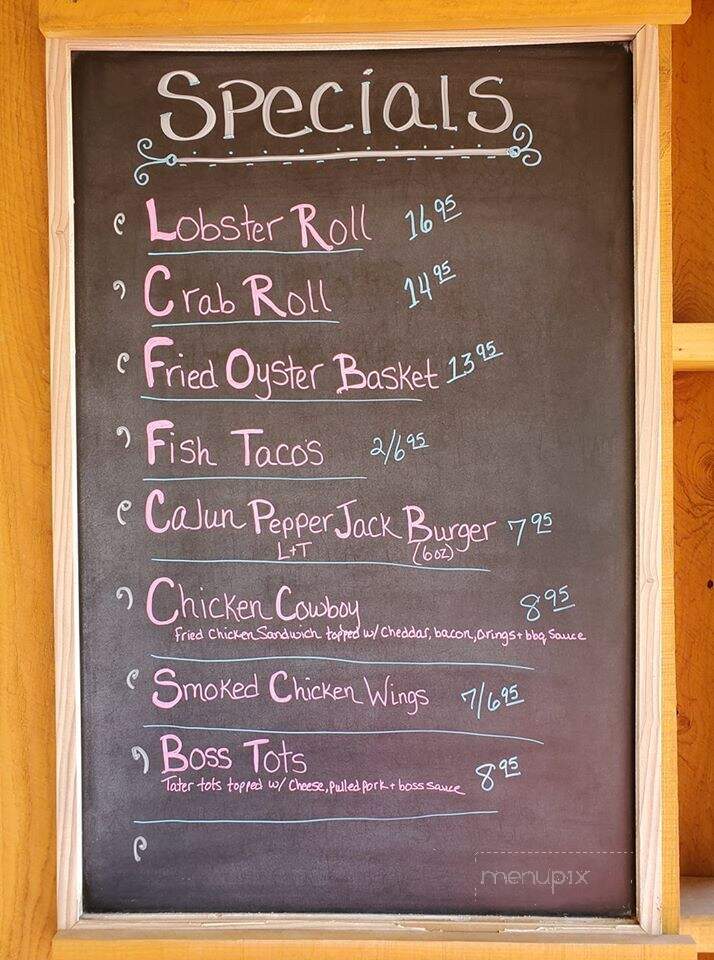 Specials
Lobster Roll 16 95
Crab Roll 14 95
Fried Oyster Basket 13 95
Fish Taco's 2/6 95
Cajun Pepper Jack Burger 7 95
L+T (6oz)
Chicken Cowboy 8 95
Fried Chicken Sandwich topped w/ Cheddar, bacon, Orings + bbq sauce
Smoked Chicken Wings 7/6 95
Boss Tots 8 95
Tater tots topped w/ Cheese, pulled pork + boss sauce
menupix